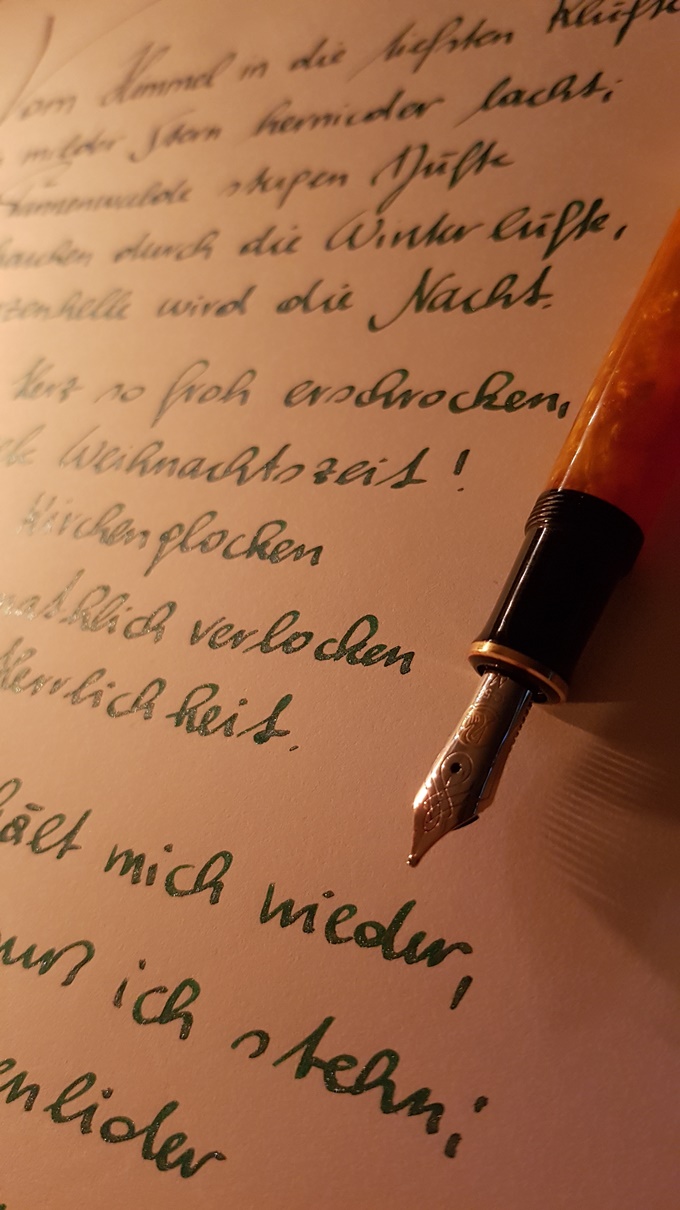 Vom Himmel in die tiefsten Klüfte
milder Stern hernieder lacht;
Tannenwalde steigen Düfte
hauchen durch die Winterlüfte,
zenhelle wird die Nacht.
Herz so froh erschrocken,
Weihnachtszeit!
Kirchenglocken
matlich verlocken
Herrlichkeit.
hält mich wieder,
muß ich stehn;
enlider